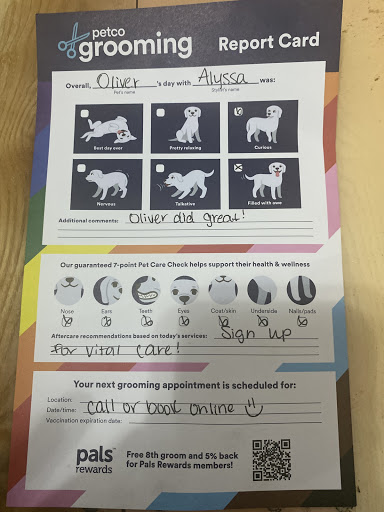 petco
grooming Report Card
Overall, Oliver 's day with Alyssa was:
Pet's name Stylist's name
Best day ever Pretty relaxing Curious
Nervous Talkative Filled with awe
Additional comments: Oliver did great!
Our guaranteed 7-point Pet Care Check helps support their health & wellness
Nose Ears Teeth Eyes Coat/skin Underside Nails/pads
Aftercare recommendations based on today's services: Sign up
for vital care!
Your next grooming appointment is scheduled for:
Location:
Date/time: call or book online
Vaccination expiration date:
pals
rewards
Free 8th groom and 5% back
for Pals Rewards members!